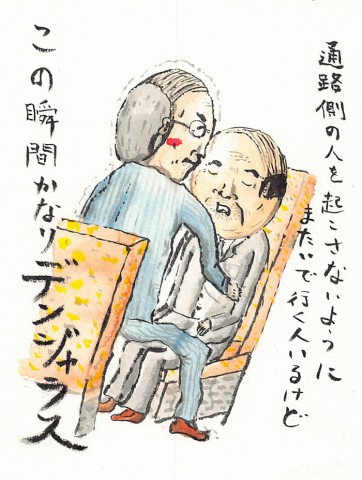 通路側の人を起こさないように
またいで行く人いるけど
この瞬間かなりデンジャラス